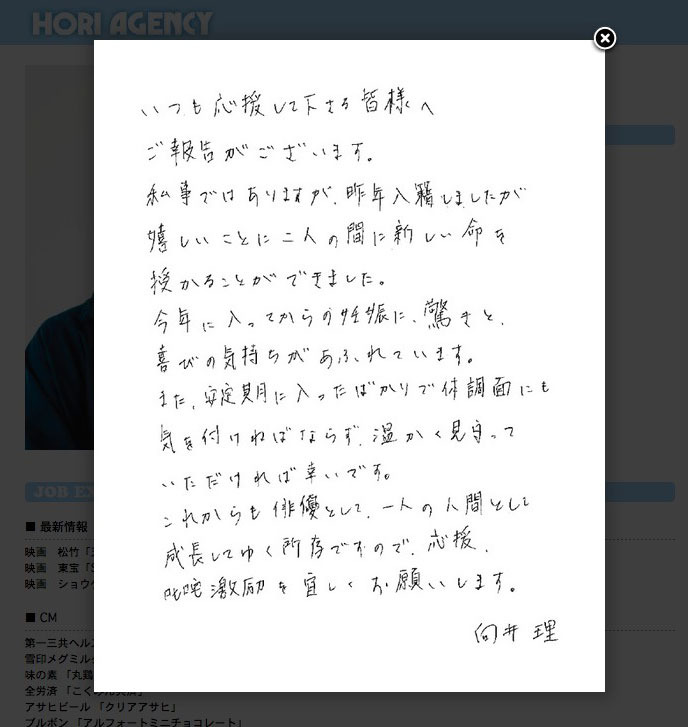 HORI AGENCY
いつも応援して下さる皆様へ
ご報告がございます。
私事ではありますが、昨年入籍しましたが
嬉しいことに二人の間に新しい命を
授かることができました。
今年に入ってからの妊娠に、驚きと、
喜びの気持ちがあふれています。
また、安定期に入ったばかりで体調面にも
気を付けねばならず、温かく見守って
いただければ幸いです。
これからも俳優として、一人の人間として
成長してゆく所存ですので、応援、
叱咤激励を宜しくお願いします。
向井 理
JOB EX
■ 最新情報
映画 松竹「
映画 東宝「S
映画 ショウゲ
■ CM
第一三共ヘル
雪印メグミル
味の素 「丸鶏
全労済 「こくみん共済」
アサヒビール 「クリアアサヒ」
ブルボン 「アルフォートミニチョコレート」